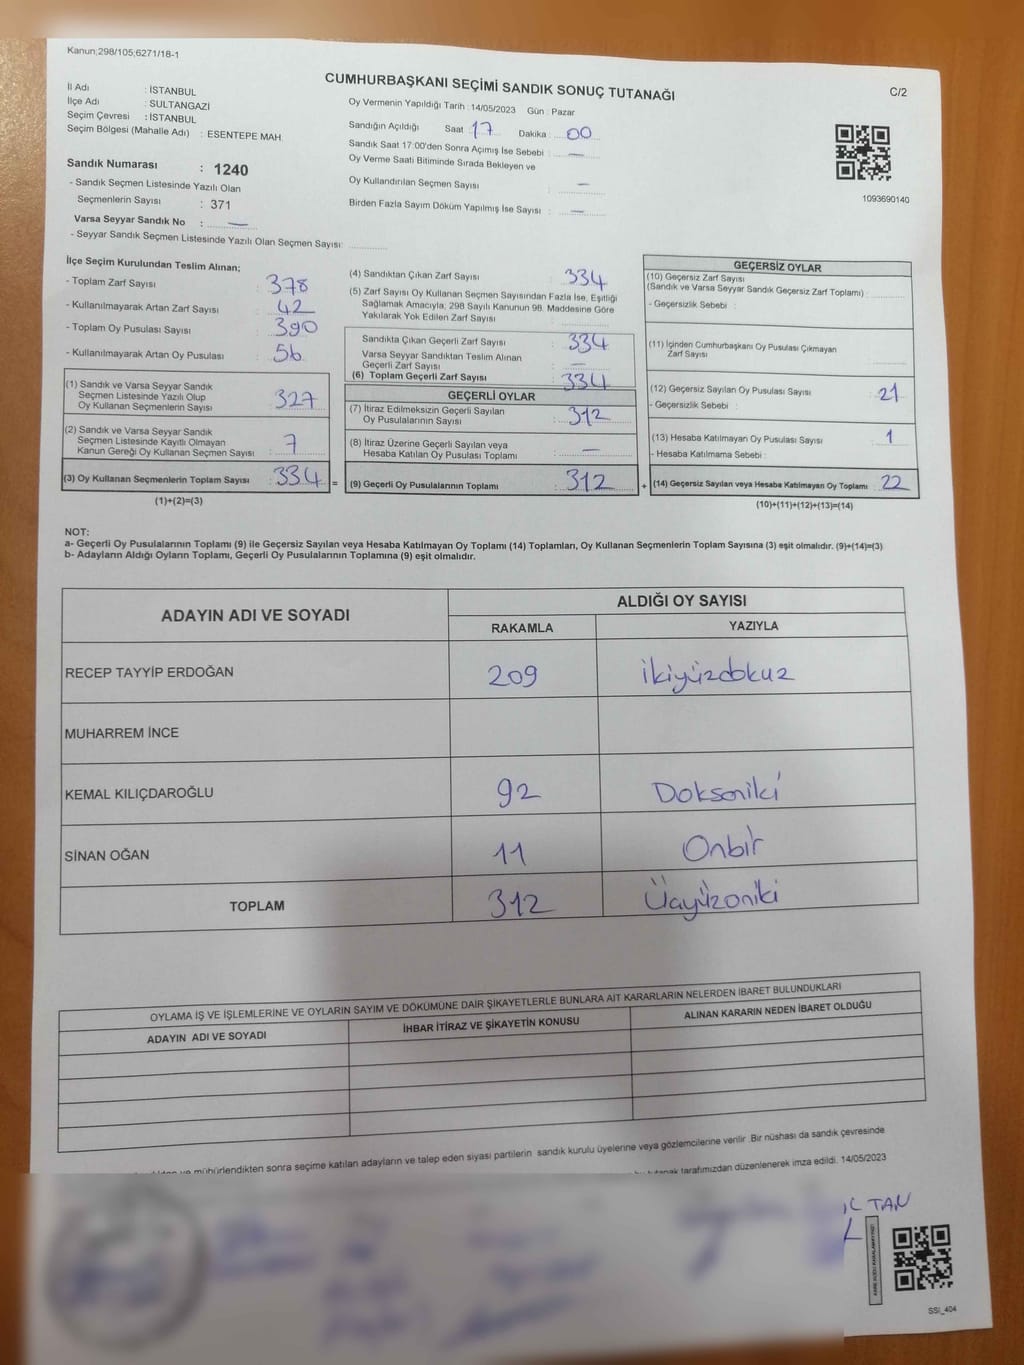 Kanun;298/105;6271/18-1
CUMHURBAŞKANI SEÇİMİ SANDIK SONUÇ TUTANAĞI
C/2
İl Adı : İSTANBUL
İlçe Adı : SULTANGAZİ
Seçim Çevresi : İSTANBUL
Seçim Bölgesi (Mahalle Adı) : ESENTEPE MAH.
Sandık Numarası : 1240
- Sandık Seçmen Listesinde Yazılı Olan
Seçmenlerin Sayısı : 371
Varsa Seyyar Sandık No : —
- Seyyar Sandık Seçmen Listesinde Yazılı Olan Seçmen Sayısı:
Oy Vermenin Yapıldığı Tarih : 14/05/2023 Gün : Pazar
Sandığın Açıldığı Saat : 17 Dakika : 00
Sandık Saat 17:00'den Sonra Açımış İse Sebebi : —
Oy Verme Saati Bitiminde Sırada Bekleyen ve
Oy Kullandırılan Seçmen Sayısı : —
Birden Fazla Sayım Döküm Yapılmış İse Sayısı : —
1093690140
İlçe Seçim Kurulundan Teslim Alınan;
- Toplam Zarf Sayısı : 378
- Kullanılmayarak Artan Zarf Sayısı : 42
- Toplam Oy Pusulası Sayısı : 390
- Kullanılmayarak Artan Oy Pusulası : 56
(1) Sandık ve Varsa Seyyar Sandık
Seçmen Listesinde Yazılı Olup
Oy Kullanan Seçmenlerin Sayısı : 327
(2) Sandık ve Varsa Seyyar Sandık
Seçmen Listesinde Kayıtlı Olmayan
Kanun Gereği Oy Kullanan Seçmen Sayısı : 7
(3) Oy Kullanan Seçmenlerin Toplam Sayısı : 334 =
(1)+(2)=(3)
(4) Sandıktan Çıkan Zarf Sayısı : 334
(5) Zarf Sayısı Oy Kullanan Seçmen Sayısından Fazla İse, Eşitliği
Sağlamak Amacıyla, 298 Sayılı Kanunun 98. Maddesine Göre
Yakılarak Yok Edilen Zarf Sayısı :
Sandıkta Çıkan Geçerli Zarf Sayısı : 334
Varsa Seyyar Sandıktan Teslim Alınan
Geçerli Zarf Sayısı : —
(6) Toplam Geçerli Zarf Sayısı : 334
GEÇERLİ OYLAR
(7) İtiraz Edilmeksizin Geçerli Sayılan
Oy Pusulalarının Sayısı : 312
(8) İtiraz Üzerine Geçerli Sayılan veya
Hesaba Katılan Oy Pusulası Toplamı : —
(9) Geçerli Oy Pusulalarının Toplamı : 312 +
GEÇERSİZ OYLAR
(10) Geçersiz Zarf Sayısı
(Sandık ve Varsa Seyyar Sandık Geçersiz Zarf Toplamı) :
- Geçersizlik Sebebi :
(11) İçinden Cumhurbaşkanı Oy Pusulası Çıkmayan
Zarf Sayısı
(12) Geçersiz Sayılan Oy Pusulası Sayısı : 21
- Geçersizlik Sebebi :
(13) Hesaba Katılmayan Oy Pusulası Sayısı : 1
- Hesaba Katılmama Sebebi :
(14) Geçersiz Sayılan veya Hesaba Katılmayan Oy Toplamı : 22
(10)+(11)+(12)+(13)=(14)
NOT:
a- Geçerli Oy Pusulalarının Toplamı (9) ile Geçersiz Sayılan veya Hesaba Katılmayan Oy Toplamı (14) Toplamları, Oy Kullanan Seçmenlerin Toplam Sayısına (3) eşit olmalıdır. (9)+(14)=(3)
b- Adayların Aldığı Oyların Toplamı, Geçerli Oy Pusulalarının Toplamına (9) eşit olmalıdır.
ADAYIN ADI VE SOYADI ALDIĞI OY SAYISI
RAKAMLA YAZIYLA
RECEP TAYYİP ERDOĞAN 209 ikiyüzdokuz
MUHARREM İNCE
KEMAL KILIÇDAROĞLU 92 Doksaniki
SİNAN OĞAN 11 Onbir
TOPLAM 312 Üçyüzoniki
OYLAMA İŞ VE İŞLEMLERİNE VE OYLARIN SAYIM VE DÖKÜMÜNE DAİR ŞİKAYETLERLE BUNLARA AİT KARARLARIN NELERDEN İBARET BULUNDUKLARI
ADAYIN ADI VE SOYADI İHBAR İTİRAZ VE ŞİKAYETİN KONUSU ALINAN KARARIN NEDEN İBARET OLDUĞU
ve mühürlendikten sonra seçime katılan adayların ve talep eden siyasi partilerin sandık kurulu üyelerine veya gözlemcilerine verilir. Bir nüshası da sandık çevresinde
tutanak tarafımızdan düzenlenerek imza edildi. 14/05/2023
TAN
SSI_404